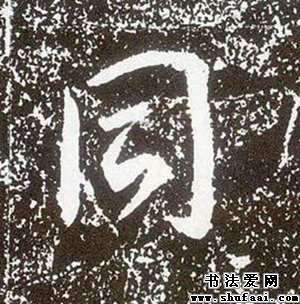 同
书法爱网
www.shufaai.com